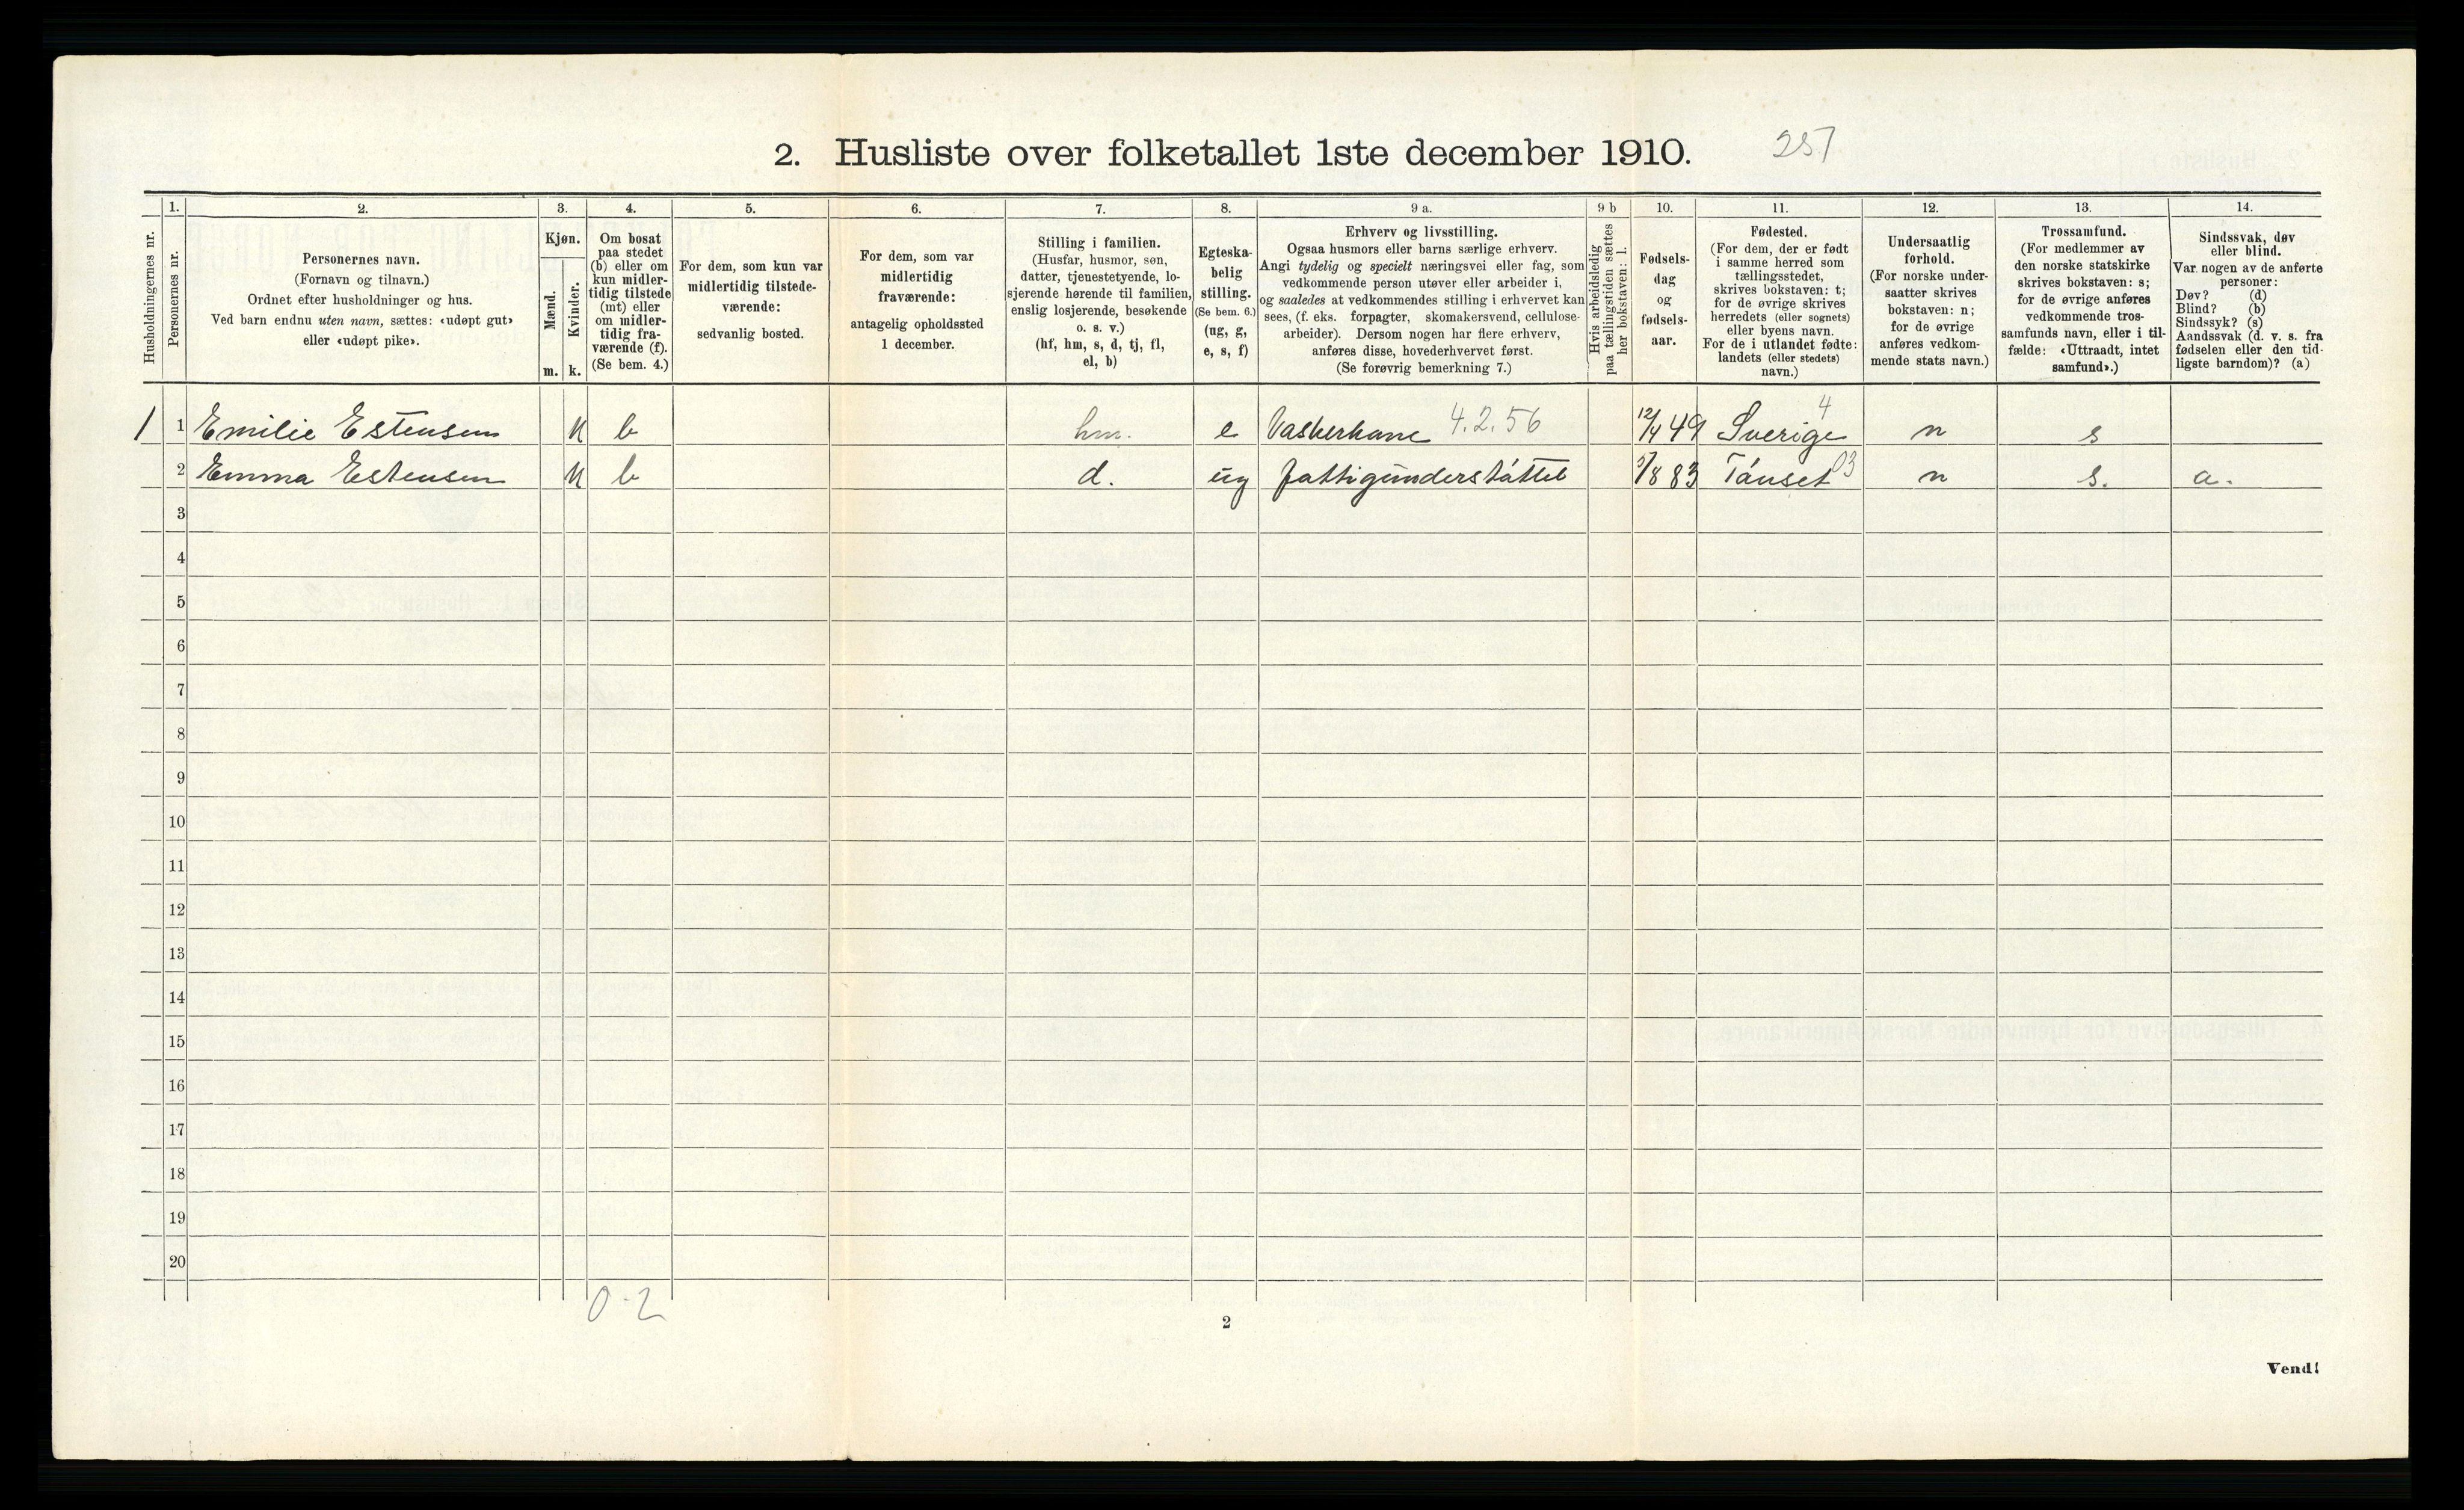 2. Husliste over folketallet 1ste december 1910. 257
Husholdningernes nr.
1.
Personernes nr.
2.
Personernes navn.
(Fornavn og tilnavn.)
Ordnet efter husholdninger og hus.
Ved barn endnu uten navn, sættes: «udøpt gut»
eller «udøpt pike».
3.
Kjøn.
Mænd.
m.
Kvinder.
k.
4.
Om bosat
paa stedet
(b) eller om
kun midler-
tidig tilstede
(mt) eller
om midler-
tidig fra-
værende (f).
(Se bem. 4.)
5.
For dem, som kun var
midlertidig tilstede-
værende:
sedvanlig bosted.
6.
For dem, som var
midlertidig
fraværende:
antagelig opholdssted
1 december.
7.
Stilling i familien.
(Husfar, husmor, søn,
datter, tjenestetyende, lo-
sjerende hørende til familien,
enslig losjerende, besøkende
o. s. v.)
(hf, hm, s, d, tj, fl,
el, b)
8.
Egteska-
belig
stilling.
(Se bem. 6.)
(ug, g,
e, s, f)
9 a.
Erhverv og livsstilling.
Ogsaa husmors eller barns særlige erhverv.
Angi tydelig og specielt næringsvei eller fag, som
vedkommende person utøver eller arbeider i,
og saaledes at vedkommendes stilling i erhvervet kan
sees, (f. eks. forpagter, skomakersvend, cellulose-
arbeider). Dersom nogen har flere erhverv,
anføres disse, hovederhvervet først.
(Se forøvrig bemerkning 7.)
9 b
Hvis arbeidsledig
paa tællingstiden sættes
her bokstaven: l.
10.
Fødsels-
dag
og
fødsels-
aar.
11.
Fødested.
(For dem, der er født
i samme herred som
tællingsstedet,
skrives bokstaven: t;
for de øvrige skrives
herredets (eller sognets)
eller byens navn.
For de i utlandet fødte:
landets (eller stedets)
navn.)
12.
Undersaatlig
forhold.
(For norske under-
saatter skrives
bokstaven: n;
for de øvrige
anføres vedkom-
mende stats navn.)
13.
Trossamfund.
(For medlemmer av
den norske statskirke
skrives bokstaven: s;
for de øvrige anføres
vedkommende tros-
samfunds navn, eller i til-
fælde: «Uttraadt, intet
samfund».)
14.
Sindssvak, døv
eller blind.
Var nogen av de anførte
personer:
Døv? (d)
Blind? (b)
Sindssyk? (s)
Aandssvak (d. v. s. fra
fødselen eller den tid-
ligste barndom)? (a)
1 1 Emilie Estensen K b hm. e Vaskerkone 4.2.56 12/4 49 Sverige 4 n s
2 Emma Estensen K b d. ug fattigunderstáttet 5/8 83 Tánset 03 n s. a.
3
4
5
6
7
8
9
10
11
12
13
14
15
16
17
18
19
20
0-2
2
Vend!